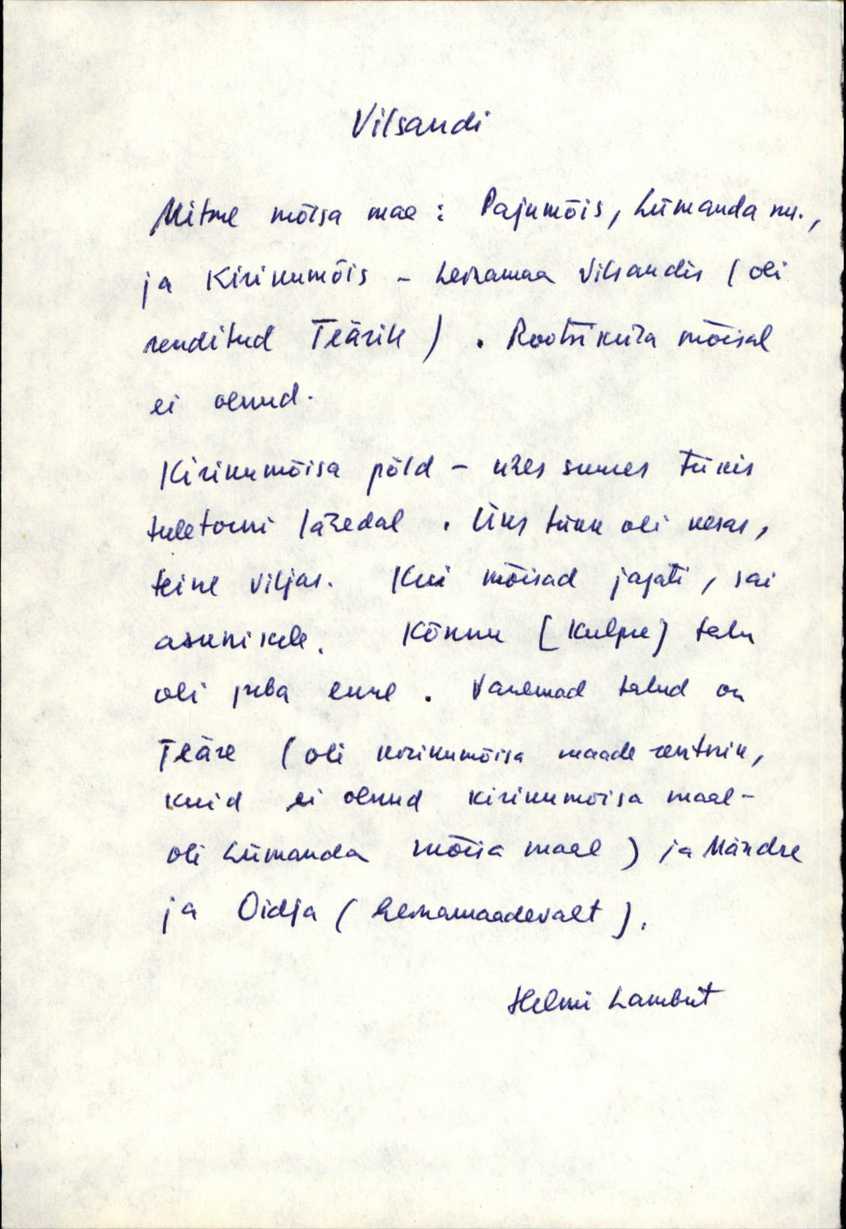 Vilsandi
Mitme mõisa maa : Pajumõis, Lümanda m.,
ja Kirikumõis – Leiramaa Vilsandis (oli
renditud Teärih) . Rootsiküla mõisal
ei olnud.
Kirikumõisa põld – ühes suures tükis
tuletorni lähedal . Üks tükk oli kesas,
teine viljas. Kui mõisad jagati, sai
asunikele. Kõnnu [Kulpre] talu
oli juba enne . Vanemad talud on
Teäre (oli kirikumõisa maade rentnik,
kuid ei olnud kirikumõisa maal-
oli Lümanda mõisa maal ) ja Mändre
ja Oidja ( ).
Helmi Lambut